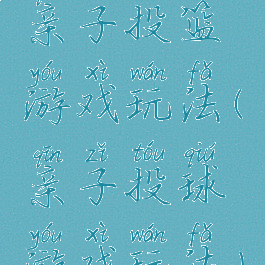 亲子投篮
yóu xì wán fǎ
游戏玩法(
qīn zǐ tóu qiú
亲子投球
yóu xì wán fǎ
游戏玩法)